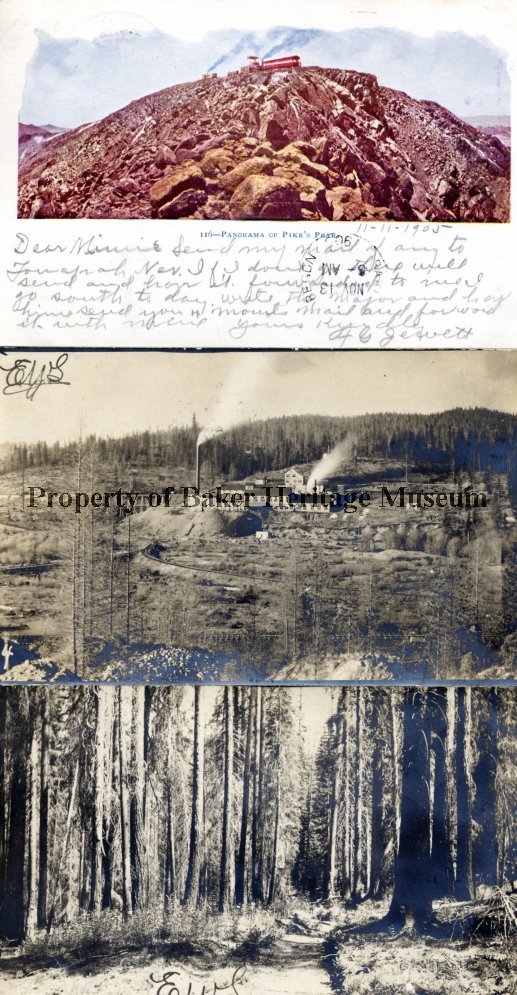 116—PANORAMA OF PIKE'S PEAK.
11-11-1905
Dear Minnie Send my mail if any to
Tonapah, Nev. If I don't
send and have it forwarded to me I
go south to day, write the Major and have
him send you mail and forward
it with mine Yours
H C Jewett
NOV 13
8 AM
EYS
Property of Baker Heritage Museum
EWS